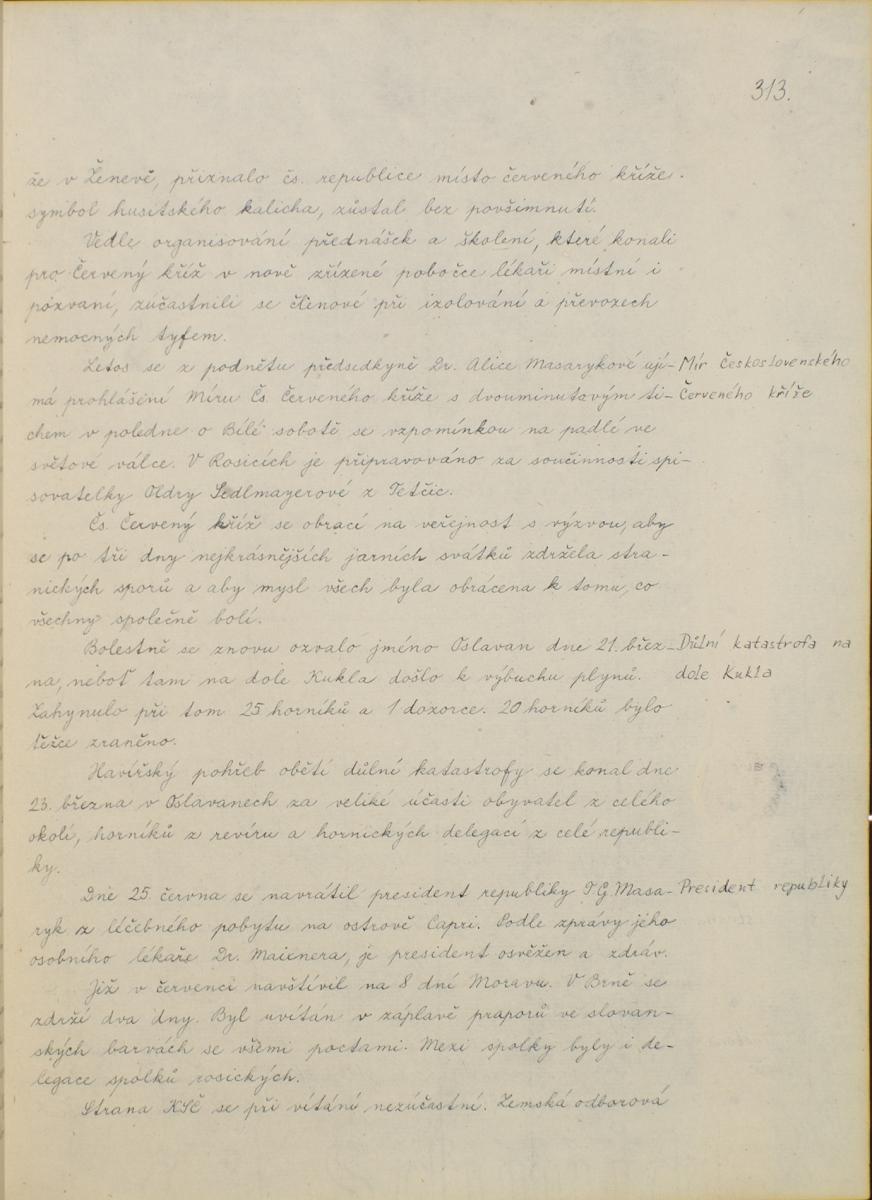 313.
že v Ženevě, přiznalo čs. republice místo červeného kříže
symbol husitského kalicha, zůstal bez povšimnutí.
Vedle organisování přednášek a školení, které konali
pro Červený kříž v nově zřízené pobočce lékaři místní i
pozvaní, zúčastnili se členové při izolování a převozech
nemocných tyfem.
Letos se z podnětu předsedkyně Dr. Alice Masarykové ují-
má prohlášení Míru Čs. Červeného kříže s dvouminutovým ti-
chem v poledne o Bílé sobotě se vzpomínkou na padlé ve
světové válce. V Rosicích je připravováno za součinnosti spi-
sovatelky Oldry Sedlmayerové z Tetčic.
Mír Československého
Červeného kříže
Čs. Červený kříž se obrací na veřejnost s výzvou, aby
se po tři dny nejkrásnějších jarních svátků zdržela stra-
nických sporů a aby mysl všech byla obrácena k tomu, co
všechny společně bolí.
Bolestně se znovu ozvalo jméno Oslavan dne 21. břez-
na, neboť tam na dole Kukla došlo k výbuchu plynů.
Zahynulo při tom 25 horníků a 1 dozorce. 20 horníků bylo
těžce zraněno.
Důlní katastrofa na
dole Kukla
Havířský pohřeb obětí důlní katastrofy se konal dne
23. března v Oslavanech za veliké účasti obyvatel z celého
okolí, horníků z revíru a hornických delegací z celé republi-
ky.
Dne 25. června se navrátil president republiky T.G. Masa-
ryk z léčebného pobytu na ostrově Capri. Podle zprávy jeho
osobního lékaře Dr. Maixnera, je president osvěžen a zdráv.
President republiky
Již v červenci navštívil na 8 dní Moravu. V Brně se
zdrží dva dny. Byl uvítán v záplavě praporů ve slovan-
ských barvách se všemi poctami. Mezi spolky byly i de-
legace spolků rosických.
Strana KSČ se při vítání nezúčastní. Zemská odborová